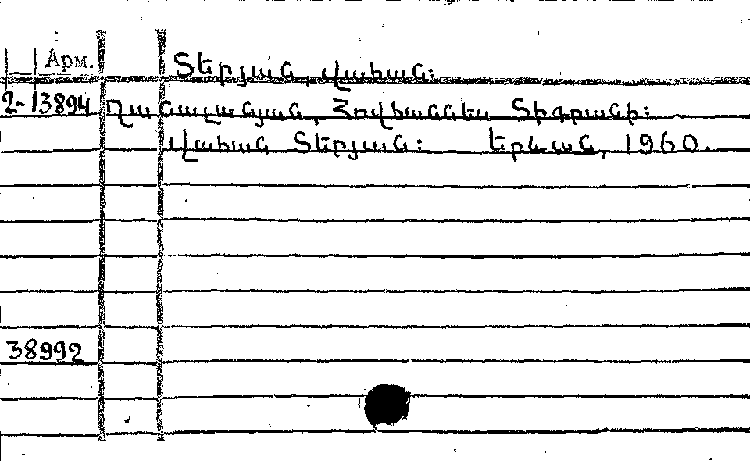 Арм.
Տերյան, Վահան:
2-13894 Ղանալանյան, Հովհաննես Տիգրանի:
Վահան Տերյան: Երևան, 1960.
38992